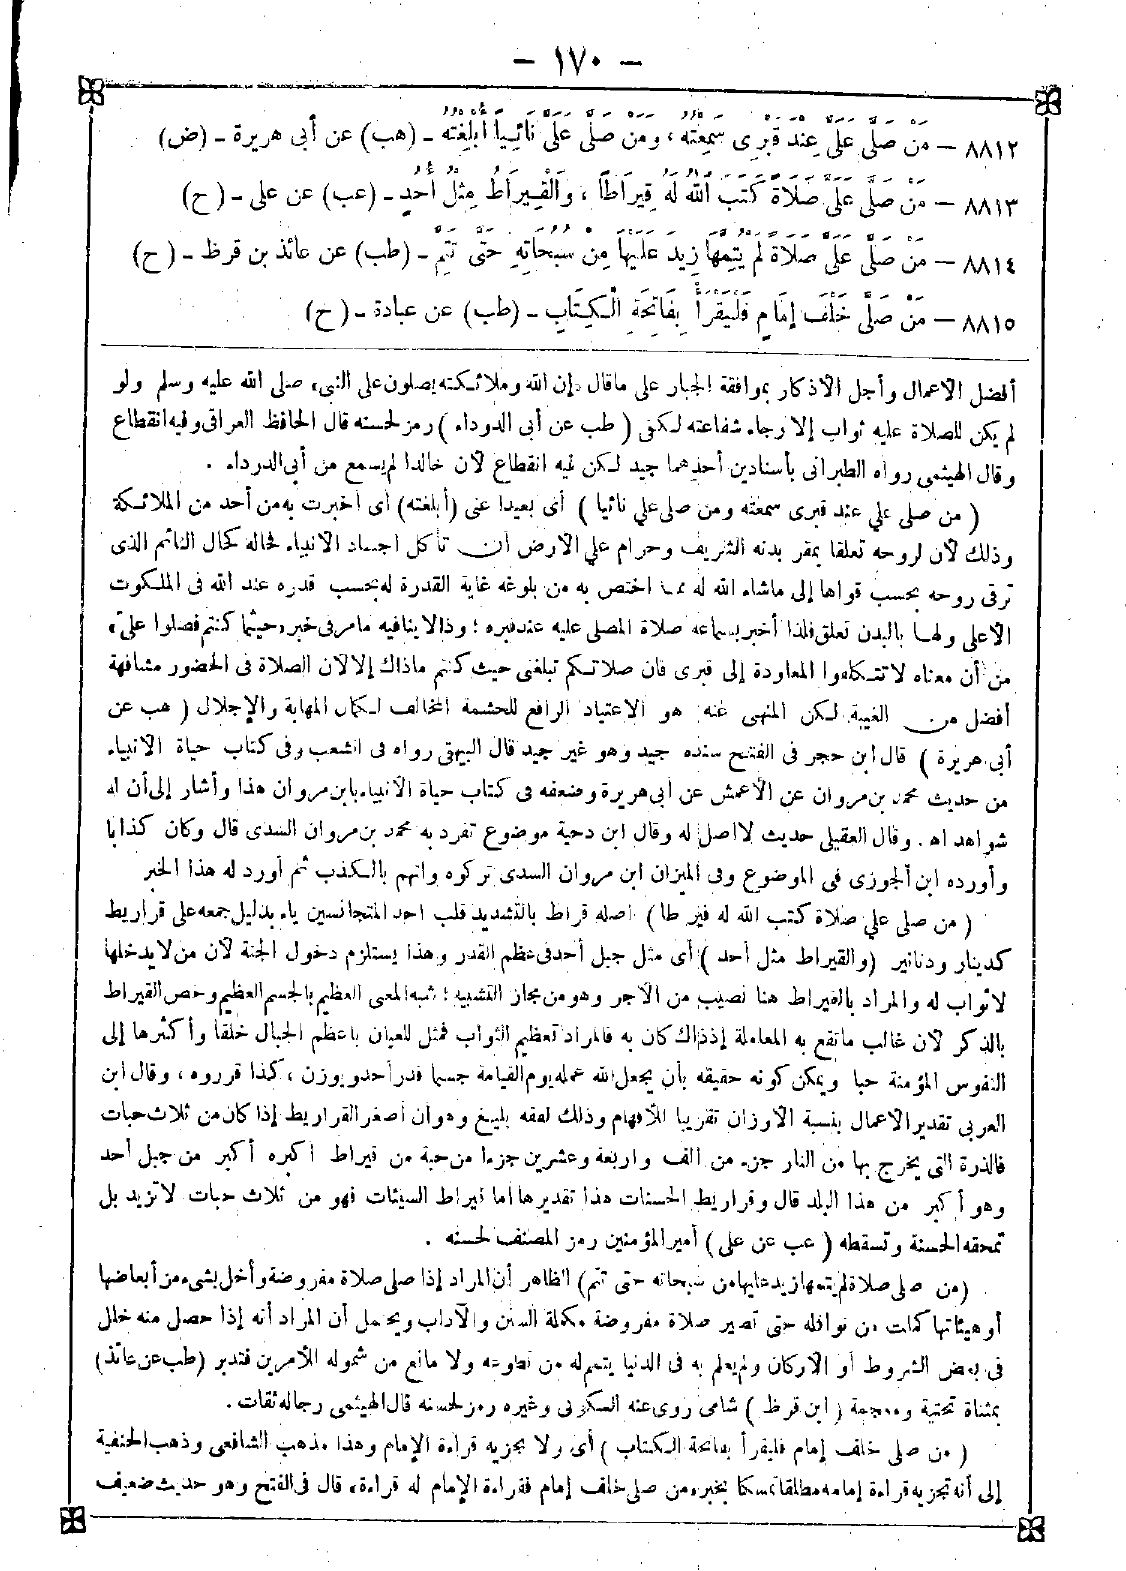 - ١٧٠ -
٨٨١٢ - مَنْ صَلَّى عَلَىَّ عِنْدَ قَبْرِى سَمِعْتُهُ ، وَمَنْ صَلَّى عَلَىَّ نَائِيًا أُبْلِغْتُهُ - (هب) عن أبى هريرة - (ض)
٨٨١٣ - مَنْ صَلَّى عَلَىَّ صَلَاةً كَتَبَ اللهُ لَهُ قِيرَاطًا ، وَالْقِيرَاطُ مِثْلُ أُحُدٍ - (عب) عن على - (ح)
٨٨١٤ - مَنْ صَلَّى عَلَىَّ صَلَاةً لَمْ يُتِمَّهَا زِيدَ عَلَيْهَا مِنْ سُبُحَاتِهِ حَتَّى تَتِمَّ - (طب) عن عائذ بن قرظ - (ح)
٨٨١٥ - مَنْ صَلَّى خَلْفَ إِمَامٍ فَلْيَقْرَأْ بِفَاتِحَةِ الْكِتَابِ - (طب) عن عبادة - (ح)
أفضل الأعمال وأجل الأذكار بموافقة الجبار على ماقال «إن الله وملائكته يصلون على النبى» صلى الله عليه وسلم ولو
لم يكن للصلاة عليه ثواب إلا رجاء شفاعته لكفى ( طب عن أبى الدرداء ) رمز لحسنه قال الحافظ العراقى وفيه انقطاع
وقال الهيثمى رواه الطبرانى بأسنادين أحدهما جيد لكن فيه انقطاع لأن خالدا لم يسمع من أبى الدرداء .
( من صلى علي عند قبرى سمعته ومن صلى علي نائيا ) أى بعيدا عنى (أبلغته) أى أخبرت به من أحد من الملائكة
وذلك لأن لروحه تعلقا بمقر بدنه الشريف وحرام علي الأرض أن تأكل اجساد الأنبياء فحاله كحال النائم الذى
ترقى روحه بحسب قواها إلى ماشاء الله له مما اختص به من بلوغه غاية القدرة له بحسب قدره عند الله فى الملكوت
الأعلى ولها بالبدن تعلق فلذا أخبر بسماعه صلاة المصلى عليه عند قبره ؛ وذا لا ينافيه مامر فى خبر «حيثما كنتم فصلوا علىّ»
من أن معناه لا تتكلفوا المعاودة إلى قبرى فان صلاتكم تبلغنى حيث كنتم ماذاك إلا لأن الصلاة فى الحضور مشافهة
أفضل من الغيبة لكن المنهى عنه هو الاعتياد الرافع للحشمة المخالف لكمال المهابة والإجلال ( هب عن
أبى هريرة ) قال ابن حجر فى الفتح سنده جيد وهو غير جيد قال البيهقى رواه فى الشعب وفى كتاب حياة الأنبياء
من حديث محمد بن مروان عن الأعمش عن أبى هريرة وضعفه فى كتاب حياة الأنبياء بابن مروان هذا وأشار إلى أن له
شواهد اه . وقال العقيلى حديث لا اصل له وقال ابن دحية موضوع تفرد به محمد بن مروان السدى قال وكان كذابا
وأورده ابن الجوزى فى الموضوع وفى الميزان ابن مروان السدى تركوه واتهم بالكذب ثم أورد له هذا الخبر
( من صلى علي صلاة كتب الله له قيراطا ) اصله قراط بالتشديد قلب احد المتجانسين ياء بدليل جمعه على قراريط
كدينار ودنانير (والقيراط مثل أحد ) أى مثل جبل أحد فى عظم القدر وهذا يستلزم دخول الجنة لأن من لا يدخلها
لا ثواب له والمراد بالقيراط هنا نصيب من الأجر وهو من مجاز التشبيه ؛ شبه المعنى العظيم بالجسم العظيم وخص القيراط
بالذكر لأن غالب ماتقع به المعاملة إذ ذاك كان به فالمراد تعظيم الثواب فمثل للعيان بأعظم الجبال خلقا وأكثرها إلى
النفوس المؤمنة حبا ويمكن كونه حقيقه بأن يجعل الله عمله يوم القيامة جسما قدر أحد ويوزن ، كذا قرروه ، وقال ابن
العربى تقدير الاعمال بنسبة الأوزان تقريبا للأفهام وذلك لفقه بليغ وهو أن أصغر القراريط إذا كان من ثلاث حبات
فالذرة التى يخرج بها من النار جزء من ألف وأربعة وعشرين جزءا من حبة من قيراط أكبره أكبر من جبل أحد
وهو أكبر من هذا البلد قال وقراريط الحسنات هذا تقديرها أما قيراط السيئات فهو من ثلاث حبات لا تزيد بل
تمحقه الحسنة وتسقطه ( عب عن على ) أمير المؤمنين رمز المصنف لحسنه .
(من صلى صلاة لم يتمها زيد عليها من سبحاته حتى تتم) الظاهر أن المراد إذا صلى صلاة مفروضة وأخل بشىء من أبعاضها
أو هيئاتها كملت من نوافله حتى تصير صلاة مفروضة مكملة السنن والآداب ويحتمل أن المراد أنه إذا حصل منه خلل
فى بعض الشروط أو الأركان ولم يعلم به فى الدنيا يتمم له من تطوعه ولا مانع من شموله للأمرين فتدبر (طب عن عائذ)
بمثناة تحتية ومعجمة ( ابن قرظ ) شامى روى عنه السكونى وغيره رمز لحسنه قال الهيثمى رجاله ثقات .
( من صلى خلف إمام فليقرأ بفاتحة الكتاب ) أى ولا يجزيه قراءة الإمام وهذا مذهب الشافعى وذهب الحنفية
إلى أنه تجزيه قراءة إمامه مطلقا تمسكا بخبر «من صلى خلف إمام فقراءة الإمام له قراءة» قال فى الفتح وهو حديث ضعيف